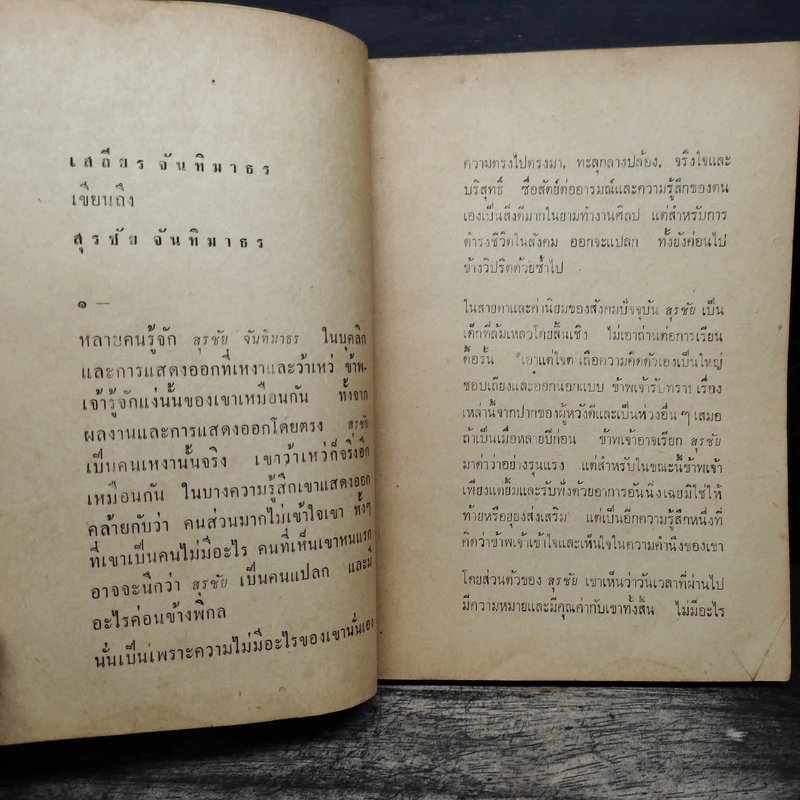 เสถียร จันทิมาธร
เขียนถึง
สุรชัย จันทิมาธร
๑ —
หลายคนรู้จัก สุรชัย จันทิมาธร ในบุคลิก
และการแสดงออกที่เหงาและว้าเหว่ ข้าพ-
เจ้ารู้จักแง่นั้นของเขาเหมือนกัน ทั้งจาก
ผลงานและการแสดงออกโดยตรง สุรชัย
เป็นคนเหงานั้นจริง เขาว้าเหว่ก็จริงอีก
เหมือนกัน ในบางความรู้สึกเขาแสดงออก
คล้ายกับว่า คนส่วนมากไม่เข้าใจเขา ทั้งๆ
ที่เขาเป็นคนไม่มีอะไร คนที่เห็นเขาหนแรก
อาจจะนึกว่า สุรชัย เป็นคนแปลก และมี
อะไรค่อนข้างพิกล
นั่นเป็นเพราะความไม่มีอะไรของเขานั่นเอง
ความตรงไปตรงมา, ทะลุกลางปล้อง, จริงใจและ
บริสุทธิ์ ซื่อสัตย์ต่ออารมณ์และความรู้สึกของตน
เองเป็นสิ่งดีมากในยามทำงานศิลป แต่สำหรับการ
ดำรงชีวิตในสังคม ออกจะแปลก ทั้งยังค่อนไป
ข้างวิปริตด้วยซ้ำไป
ในสายตาและค่านิยมของสังคมปัจจุบัน สุรชัย เป็น
เด็กที่ล้มเหลวโดยสิ้นเชิง ไม่เอาถ่านต่อการเรียน
ดื้อรั้น เอาแต่ใจตน ถือความคิดตัวเองเป็นใหญ่
ชอบเถียงและออกนอกแบบ ข้าพเจ้ารับทราบเรื่อง
เหล่านี้จากปากของผู้หวังดีและเป็นห่วงอื่น ๆ เสมอ
ถ้าเป็นเมื่อหลายปีก่อน ข้าพเจ้าอาจเรียก สุรชัย
มาด่าว่าอย่างรุนแรง แต่สำหรับในขณะนี้ข้าพเจ้า
เพียงแต่ยิ้มและรับฟังด้วยอาการอันนิ่งเฉยมิใช่ให้
ท้ายหรือยุยงส่งเสริม แต่เป็นอีกความรู้สึกหนึ่งที่
คิดว่าข้าพเจ้าเข้าใจและเห็นใจในความคำนึงของเขา
โดยส่วนตัวของ สุรชัย เขาเห็นว่าวันเวลาที่ผ่านไป
มีความหมายและมีคุณค่ากับเขาทั้งสิ้น ไม่มีอะไร